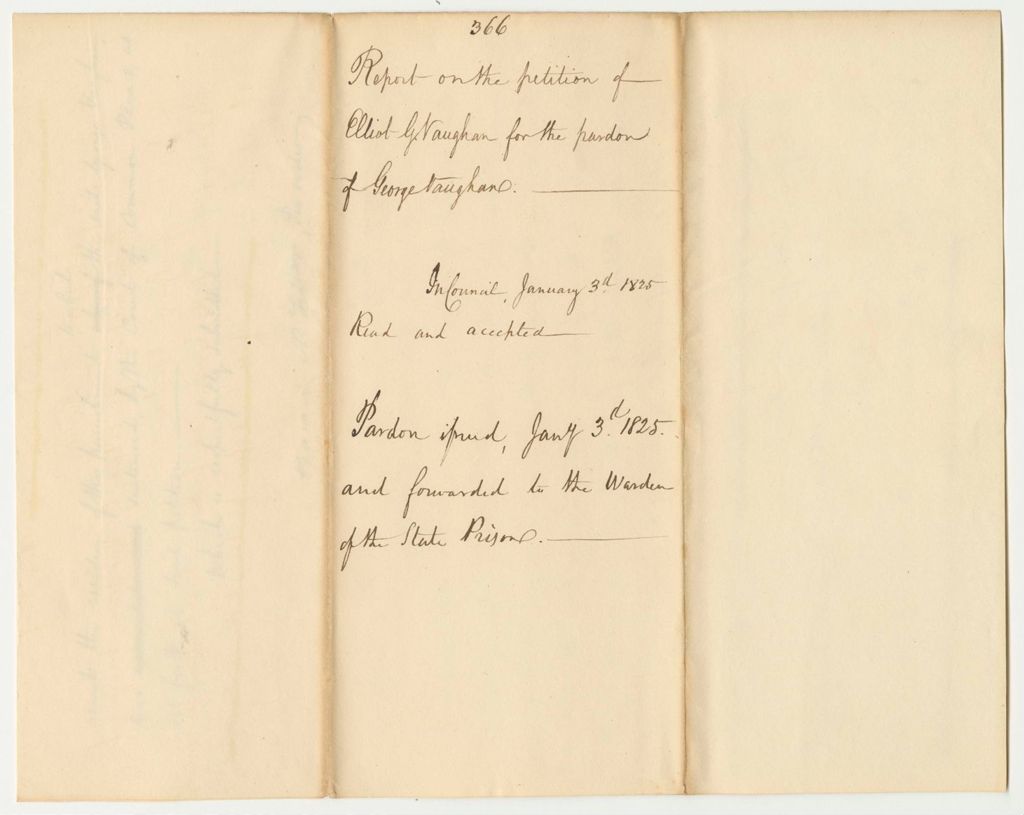 366
Report on the petition of
Elliot G. Vaughan for the pardon
of George Vaughan.
In Council, January 3d. 1825
Read and accepted
Pardon issued, Jany 3.d 1825.
and forwarded to the Warden
of the State Prison.